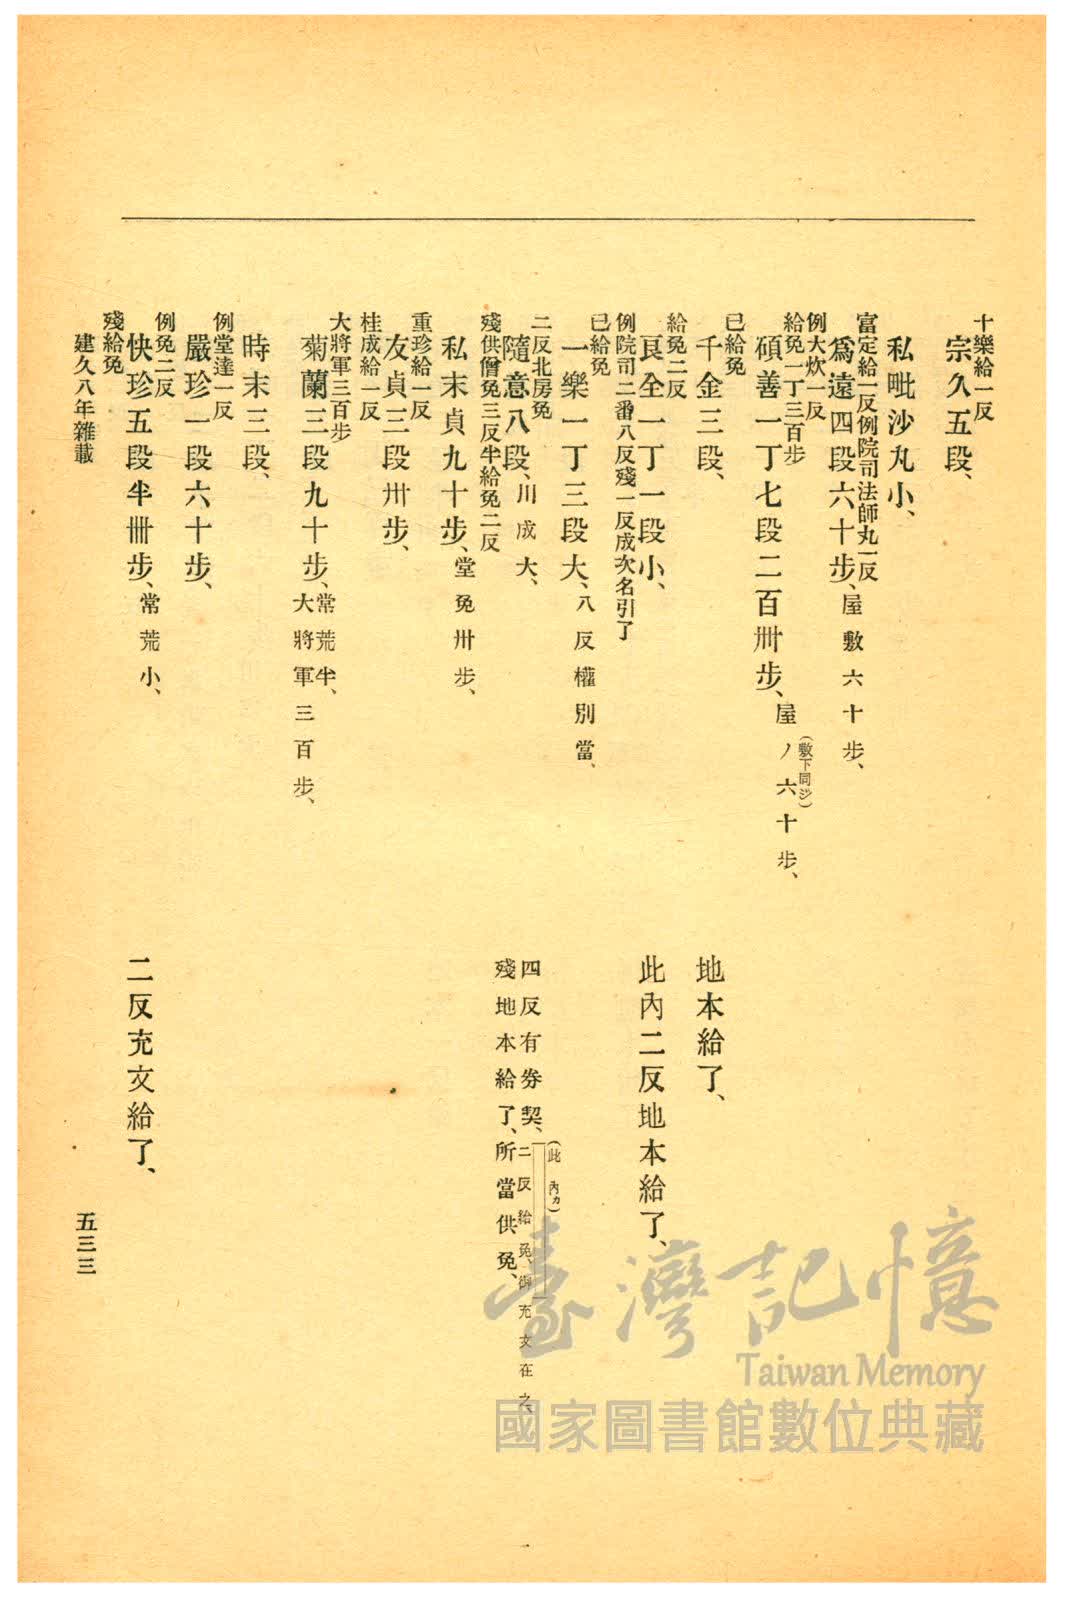 十樂給一反
宗久五段、
私毗沙丸小、
富定給一反例院司法師丸一反
爲遠四段六十步、屋敷六十步、
例大炊一反
給免一丁三百步
碩善一丁七段二百卅步、屋ノ六十步、
(敷下同ジ)
已給免
千金三段、
地本給了、
給免二反
良全一丁一段小、
此內二反地本給了、
例院司二番八反殘一反成次名引了
已給免
一樂一丁三段大、八反權別當、
二反北房免
隨意八段、川成大、
四反有券契、二反給免、御充文在之、
(此內カ)
殘地本給了、所當供免、
殘供僧免三反半給免二反
私末貞九十步、堂免卅步、
重珍給一反
友貞三段卅步、
桂成給一反
大將軍三百步
菊蘭三段九十步、常荒半、
大將軍三百步、
時末三段、
例堂達一反
嚴珍一段六十步、
例免二反
快珍五段半卌步、常荒小、
二反充文給了、
殘給免
建久八年雜載
五三三
臺灣記憶
Taiwan Memory
國家圖書館數位典藏